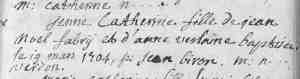 m: catherine n
jenne Catherine fille de jean
noel fabry et d'anne baptisée
le 19 mars 1704, p: jean biron. m: n
verdon.